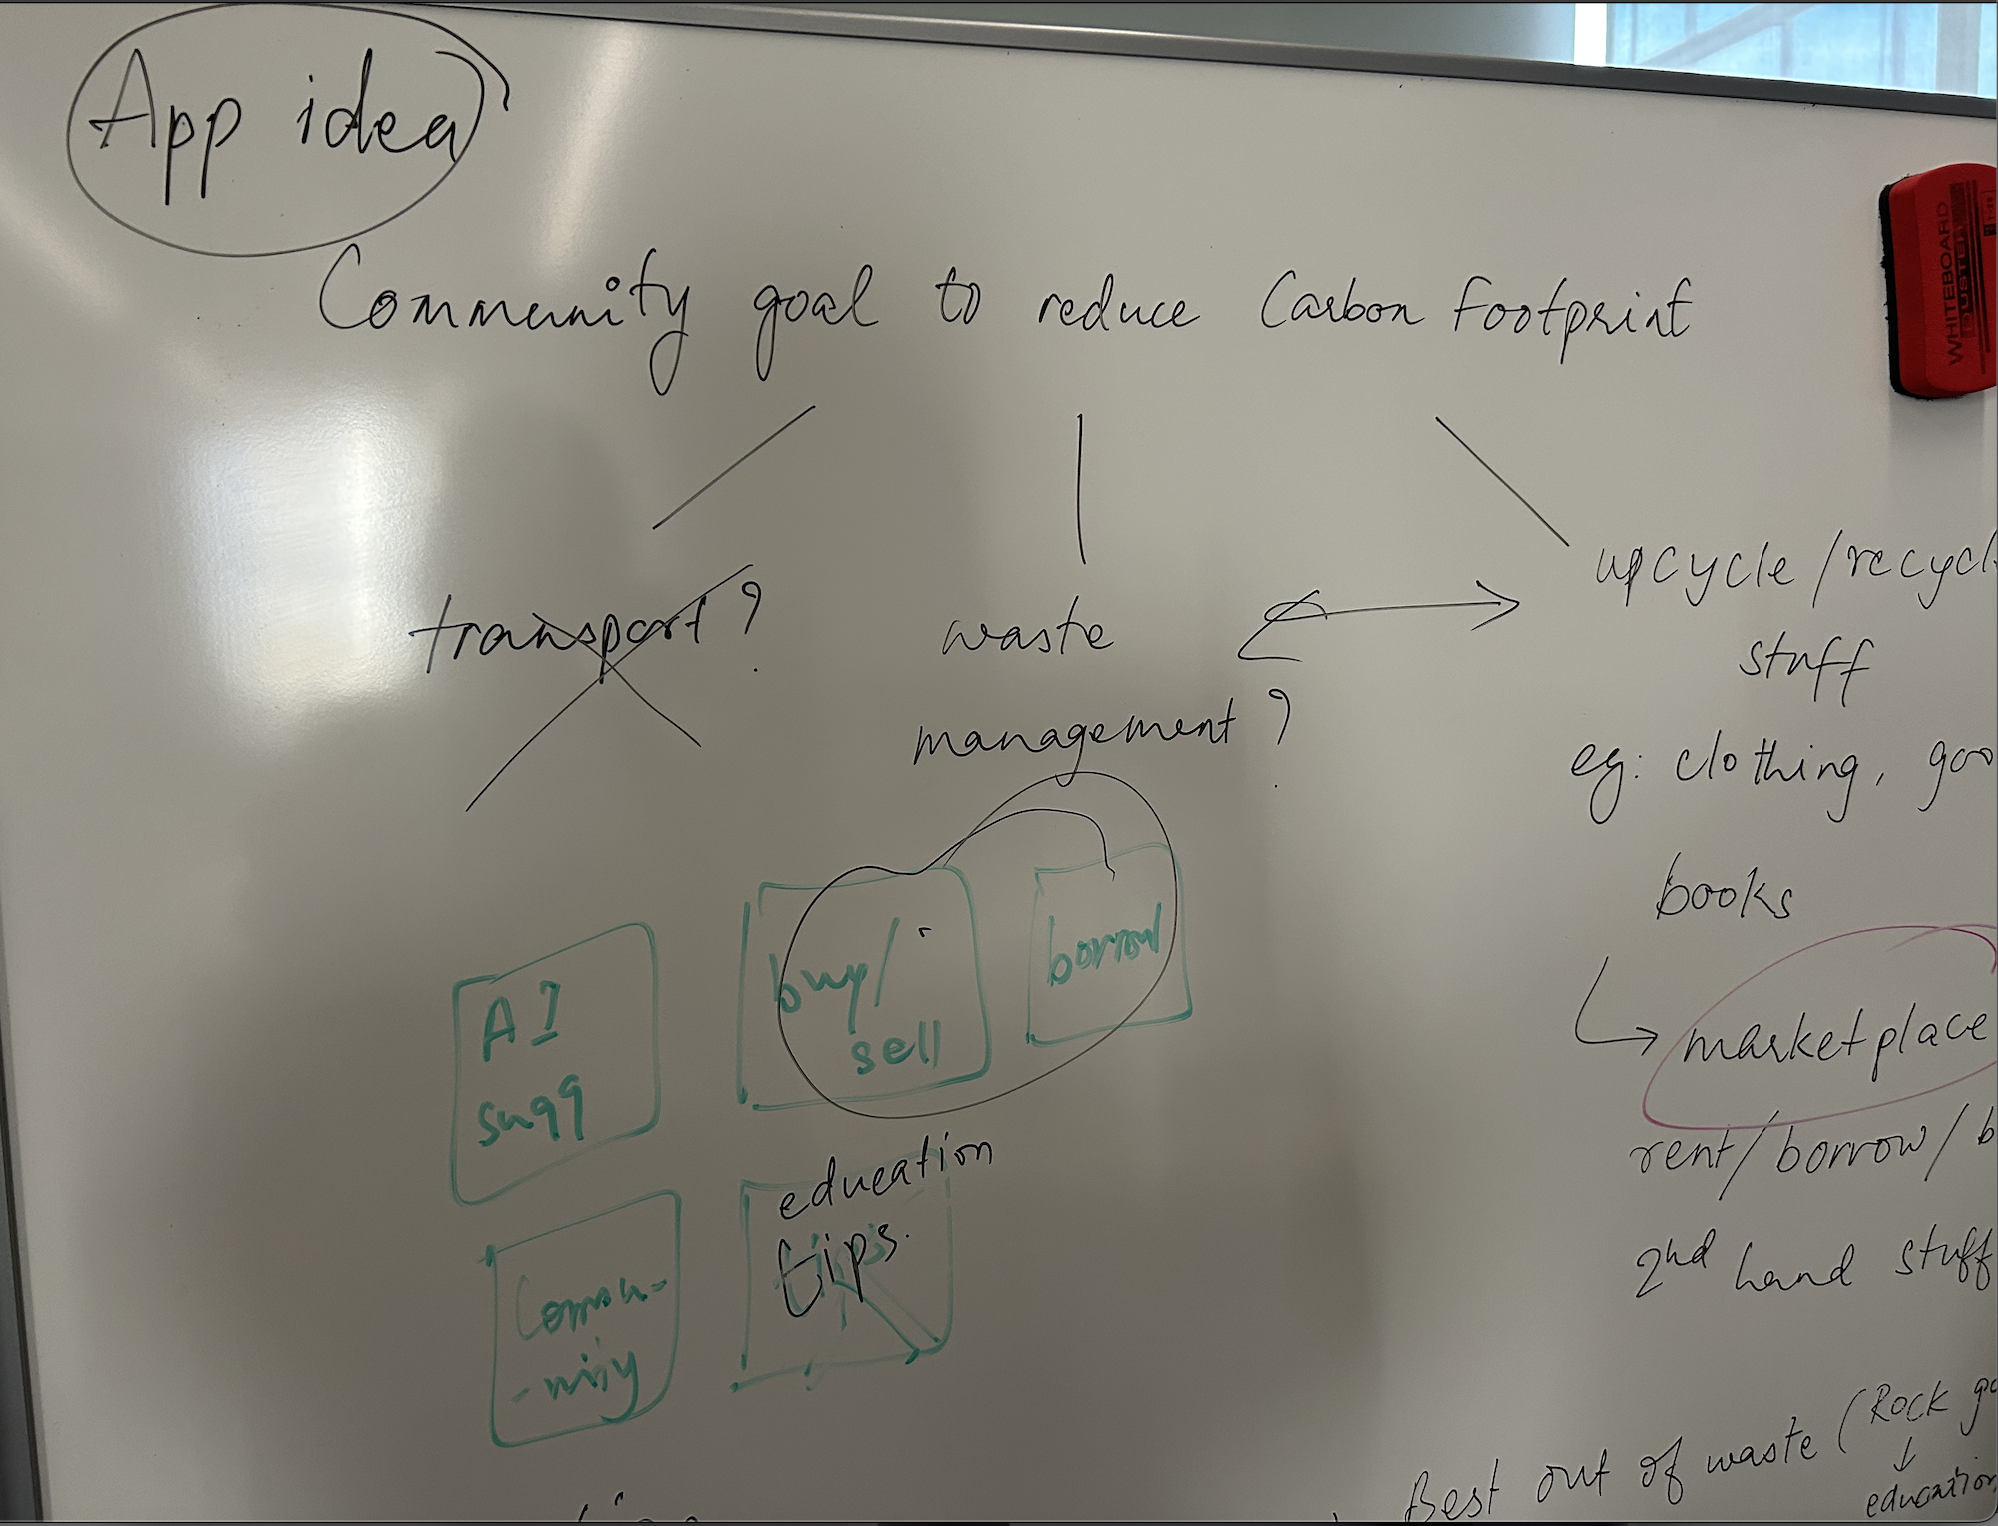 App idea
Community goal to reduce Carbon Footprint
transport?
waste
management?
upcycle/recycl
stuff
eg: clothing, goo
books
marketplace
rent/borrow/b
2nd hand stuff
AI
sugg
buy/
sell
borrow
Commu-
-nity
education
tips.
Best out of waste (Rock ga
education
WHITEBOARD
DUSTER